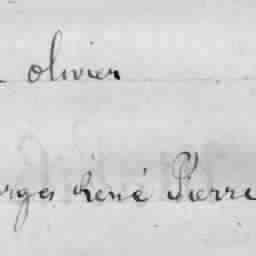 olivier
rges René Pierre